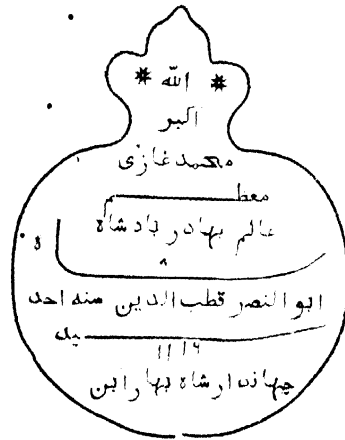 * الله *
اکبر
محمد غازی
معظم
عالم بهادر بادشاه
ابو النصر قطب الدین سنه احد
سید
۱۱۱۹
جهاندار شاه بهار ابن